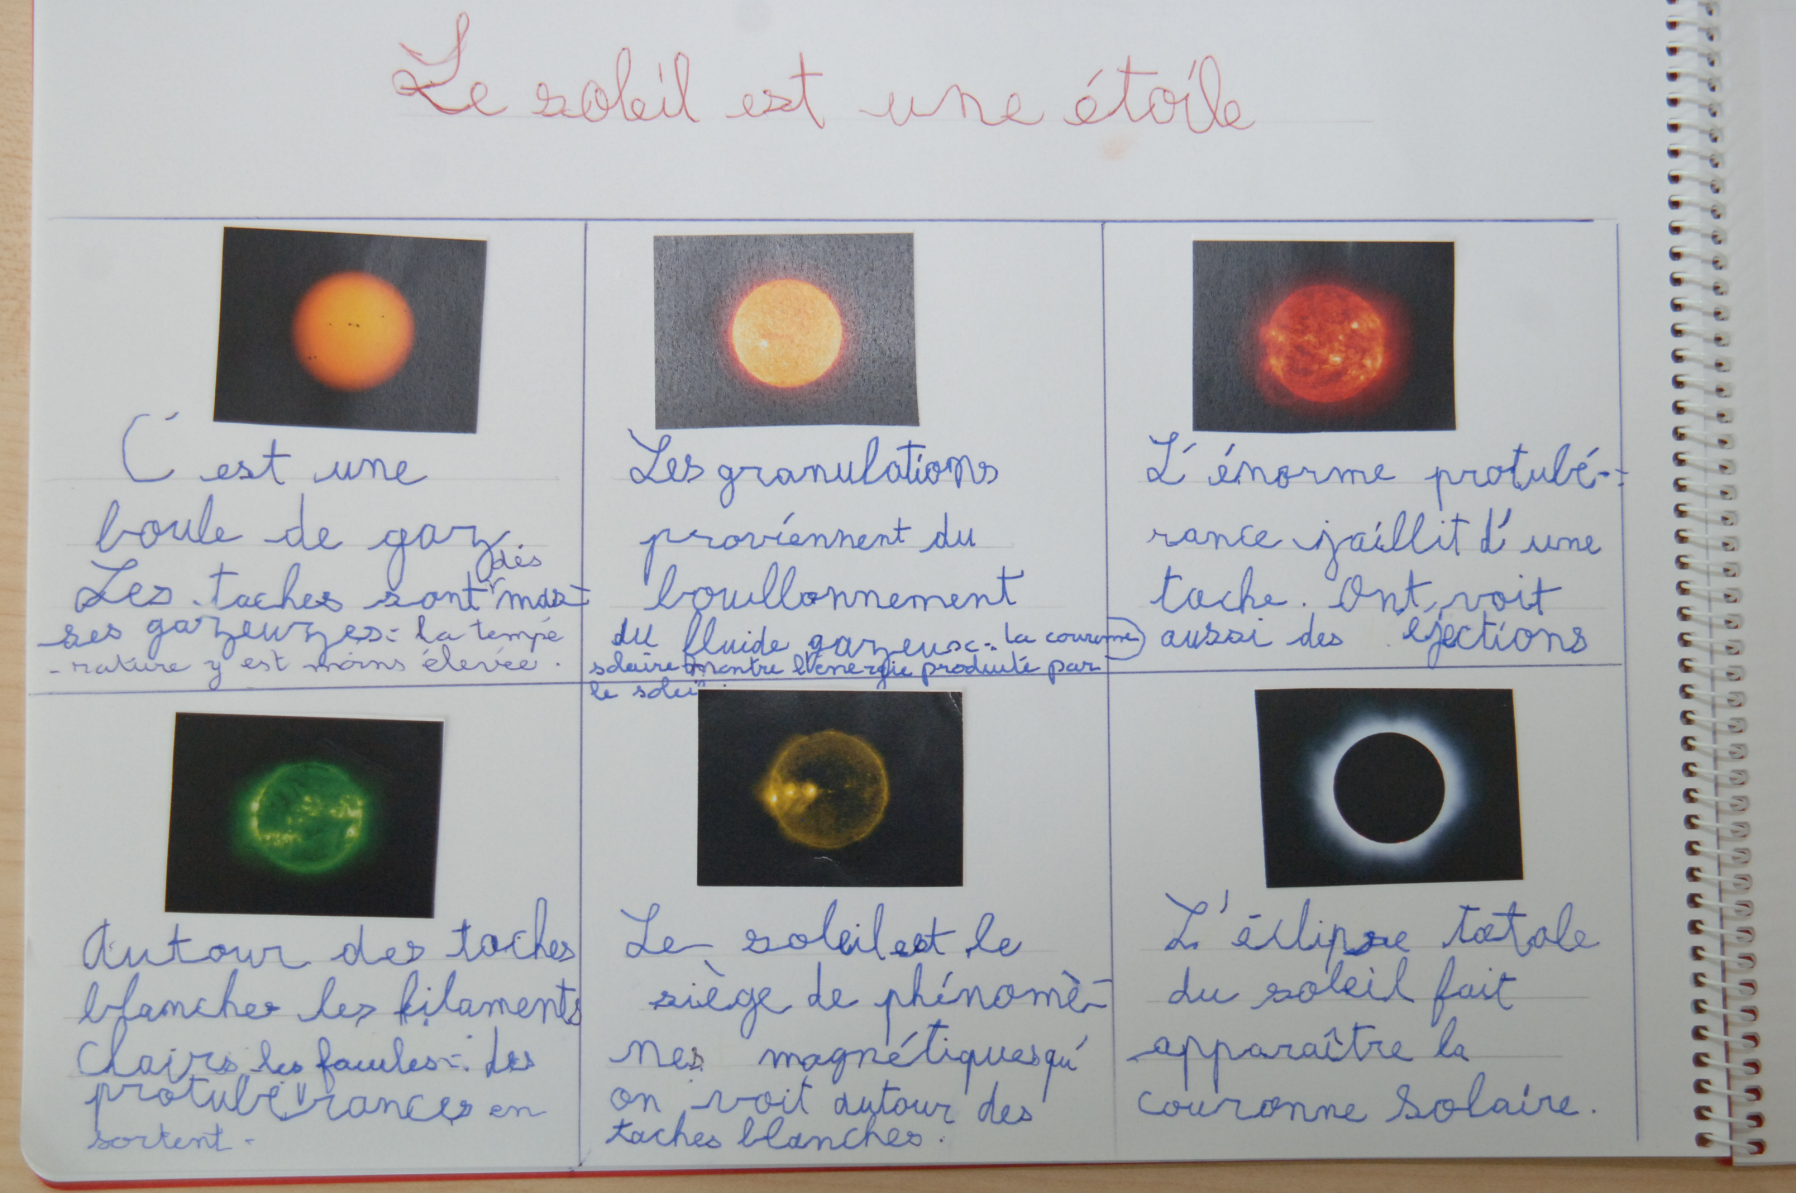 Le soleil est une étoile
C'est une
boule de gaz.
Les taches sont des mas-
ses gazeuzes : la tempé
-rature y est moins élevée.
Les granulations
proviennent du
bouillonnement
du fluide gazeux : la couronne
solaire montre l'énergie produite par
le soleil.
L'énorme protubé-
rance jaillit d'une
tache. Ont voit
aussi des éjections
Autour des taches
blanches les filaments
clairs les facules : des
protubérances en
sortent.
Le soleil est le
siège de phénomè-
nes magnétiques qu'
on voit autour des
taches blanches.
L'éclipse totale
du soleil fait
apparaître la
couronne solaire.